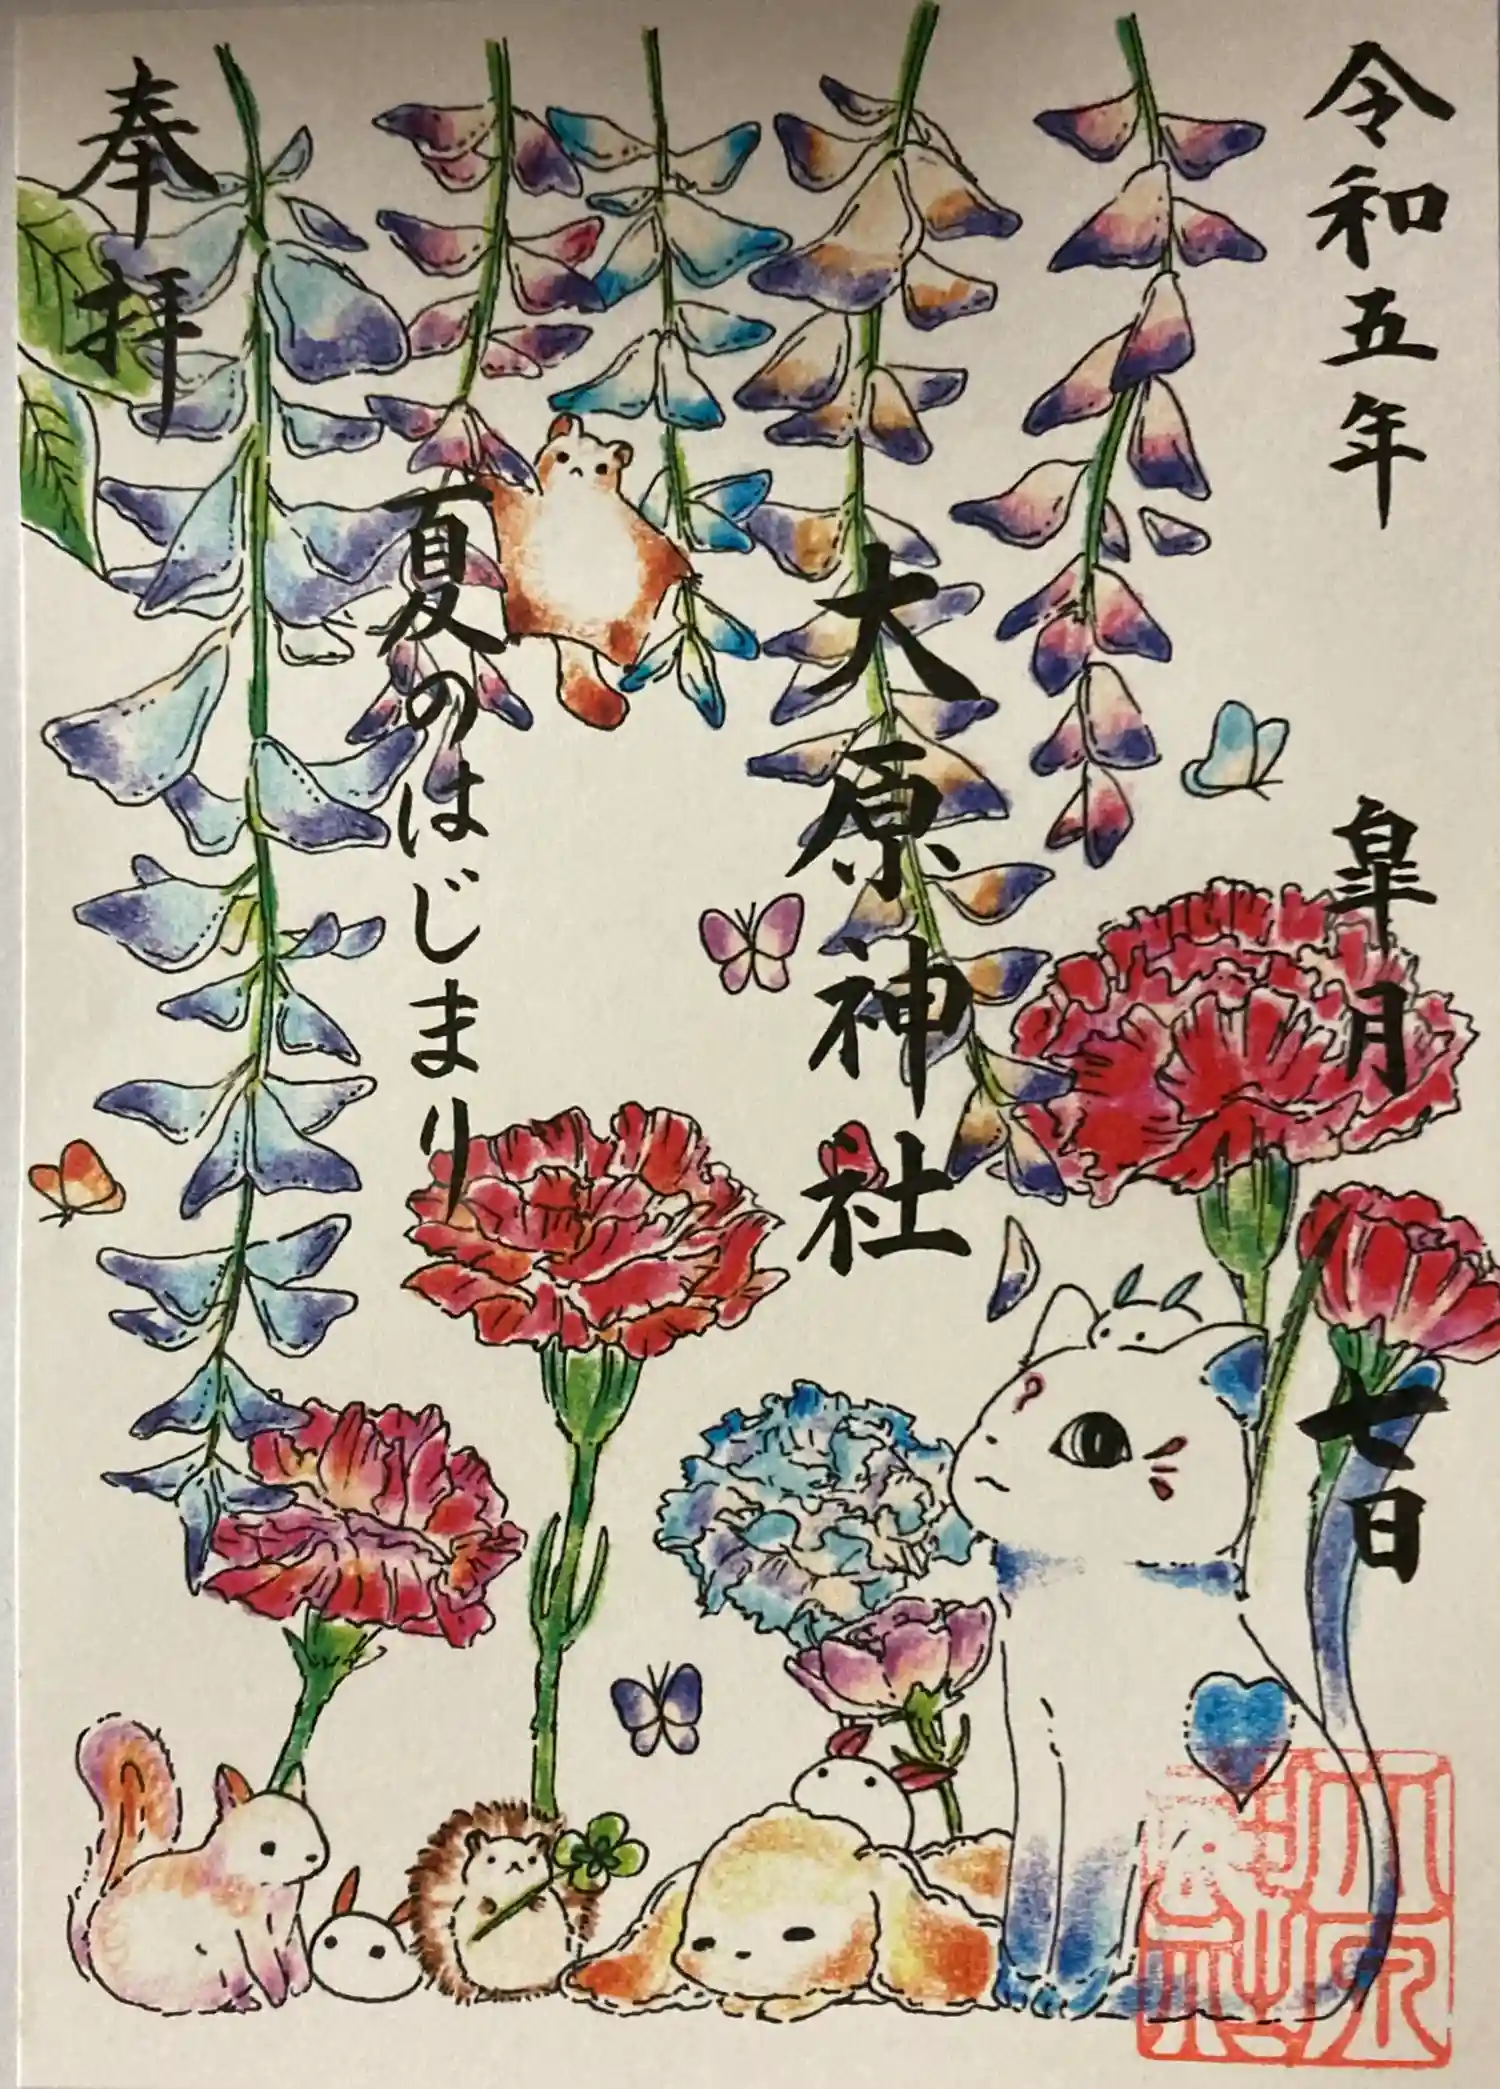 令和五年 皐月 七日
大原神社
夏のはじまり
奉拝